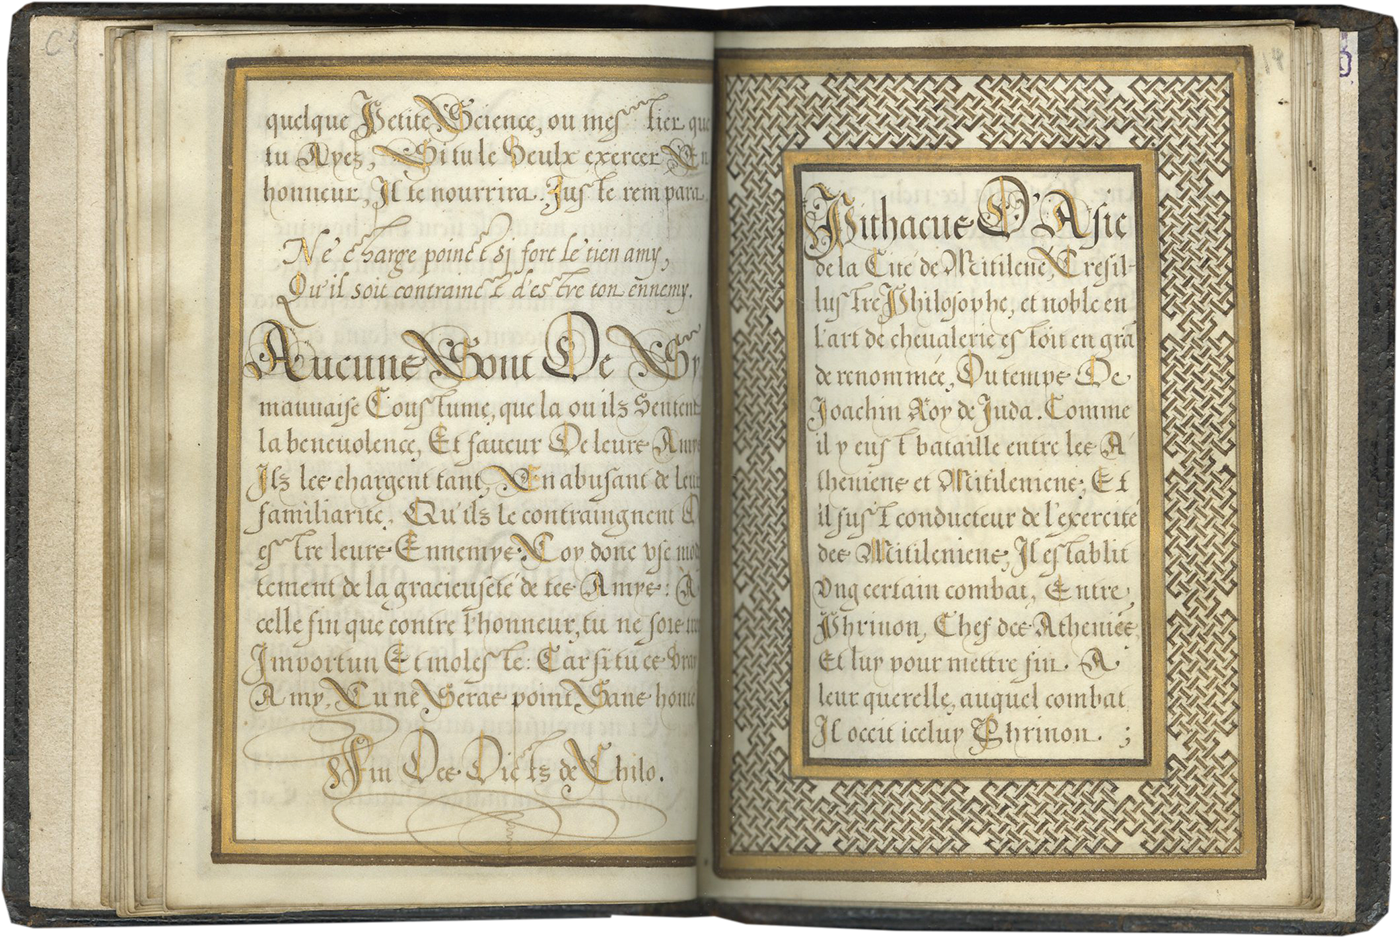 quelque Petite Science, ou mestier que
tu Ayez, Si tu le Veulx exercer En
honneur, Il te nourrira Juste rempara
Ne charge poinct si fort le tien amy,
Qu'il soit contrainct d'estre ton ennemy.
Aucuns Sont De Sy
mauuaise Coustume, que la ou ilz Sentent
la beneuolence, Et faueur De leurs Amys
Ilz les chargent tant, En abusant de leur
familiarite, Qu'ilz le contraingnent A
estre leurs Ennemys. Toy donc vse mo
tement de la gracieuseté de tes Amys: A
celle fin que contre l'honneur, tu ne sois
Importun Et moleste: Car si tu es Vray
Amy, Tu ne Seras point Sans
Fin Des Dictz de Chilo.
14
Pithacus D'Asie
de la Cité de Mitilene, Tresil-
lustre Philosophe, et noble en
l'art de cheualerie estoit en grā
de renommée, Du temps De
Joachin Roy de Juda. Comme
il y eust bataille entre les A
theniens et Mitileniens, Et
il fust conducteur de l'exercite
des Mitileniens, Il establit
Vng certain combat, Entre
Phrinon, Chef des Atheniēs
Et luy pour mettre fin A
leur querelle, auquel combat
Il occit iceluy Phrinon ;